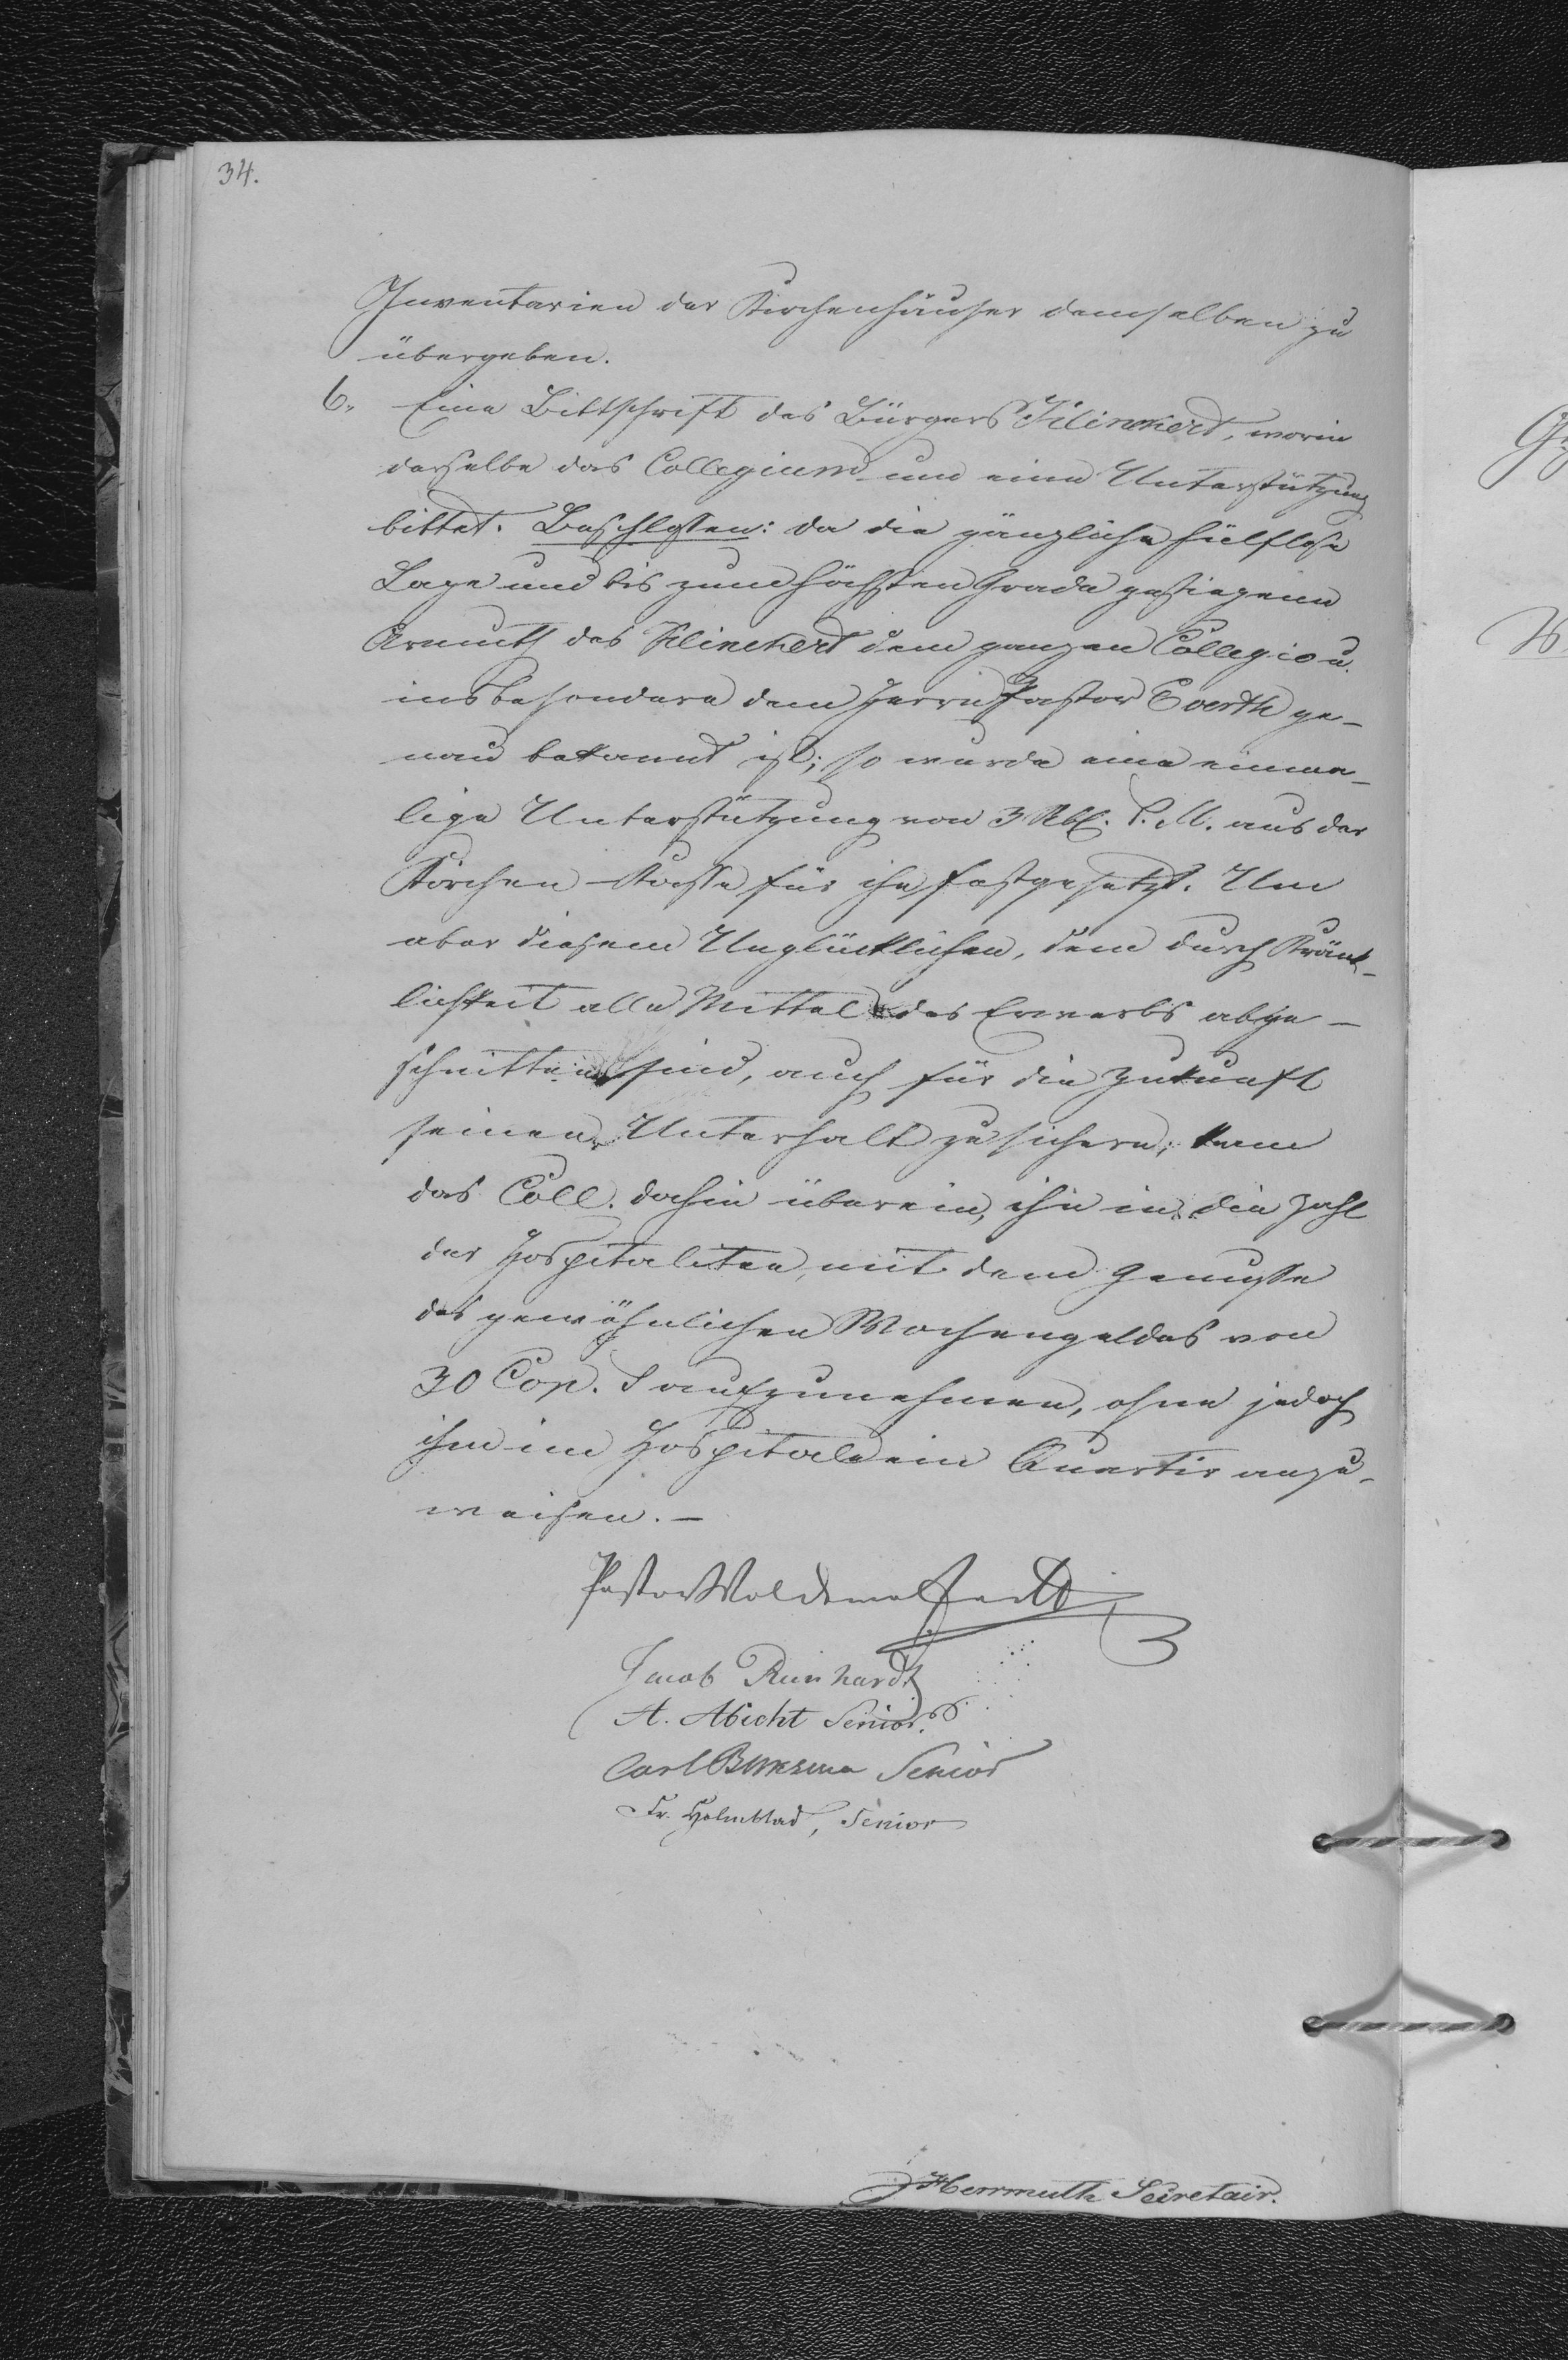 34.
Inventarien der Kirchenhäuser demselben zu
übergeben.
6. Eine Bittschrift des Bürgers Klinckert, worin
derselbe das Collegium um eine Unterstützung
bittet. Beschlossen: da die gänzliche hülflose
Lage und bis zum höchsten Grade gestiegene
Armuth des Klinckert dem ganzen Collegio u.
insbesondere dem Herrn Pastor Everth ge-
nau bekannt ist; so wurde eine einma-
lige Unterstützung von 3 Rbl. S. M. aus der
Kirchen-Kasse für ihn festgesetzt. Um
aber diesem Unglücklichen, dem durch Kränk-
lichkeit alle Mittel des Erwerbs abge-
schnitten sind, auch für die Zukunft
seinen Unterhalt zu sichern; kam
das Coll. dahin überein, ihn in die Zahl
der Hospitaliten, mit dem Genusse
des gewöhnlichen Wochengeldes von
30 Cop. S aufzunehmen, ohne jedoch
ihm im Hospitale ein Quartir anzu-
weisen. —
Pastor Woldemar
Jacob Reinhardt
A. Abicht Senior.
Carl Senior
Fr. Holmblad, Senior
Herrmuth Secretair.